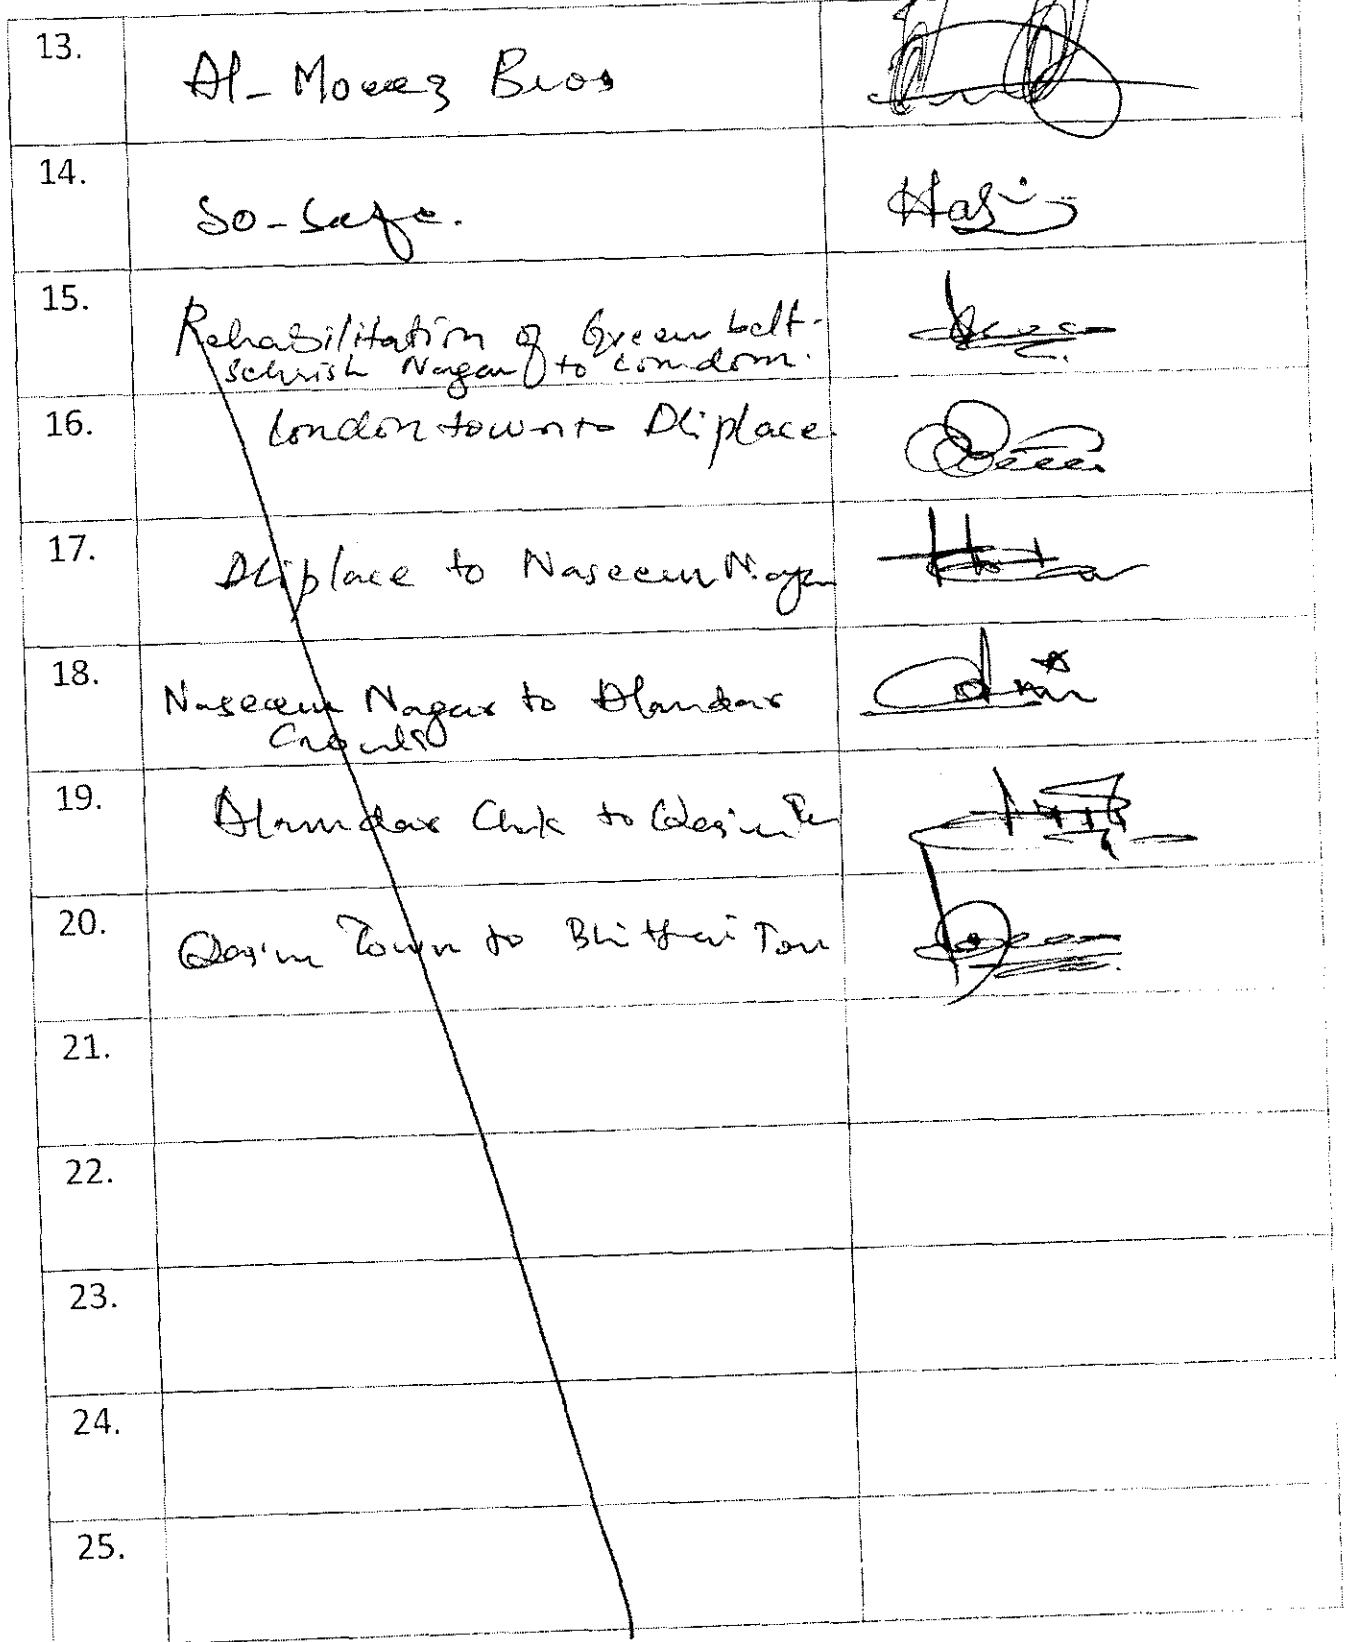 13.
Al-Moeez Bros
14.
So-Safe.
15.
Rehabilitation of Green belt-
Sehrish Nagar to London.
16.
London town to Ali place
17.
Ali place to Naseem Nagar
18.
Naseem Nagar to Alamdar
Chowk
19.
Alamdar Chok to Qasim Tn
20.
Qasim Town to Bhithai Ton
21.
22.
23.
24.
25.